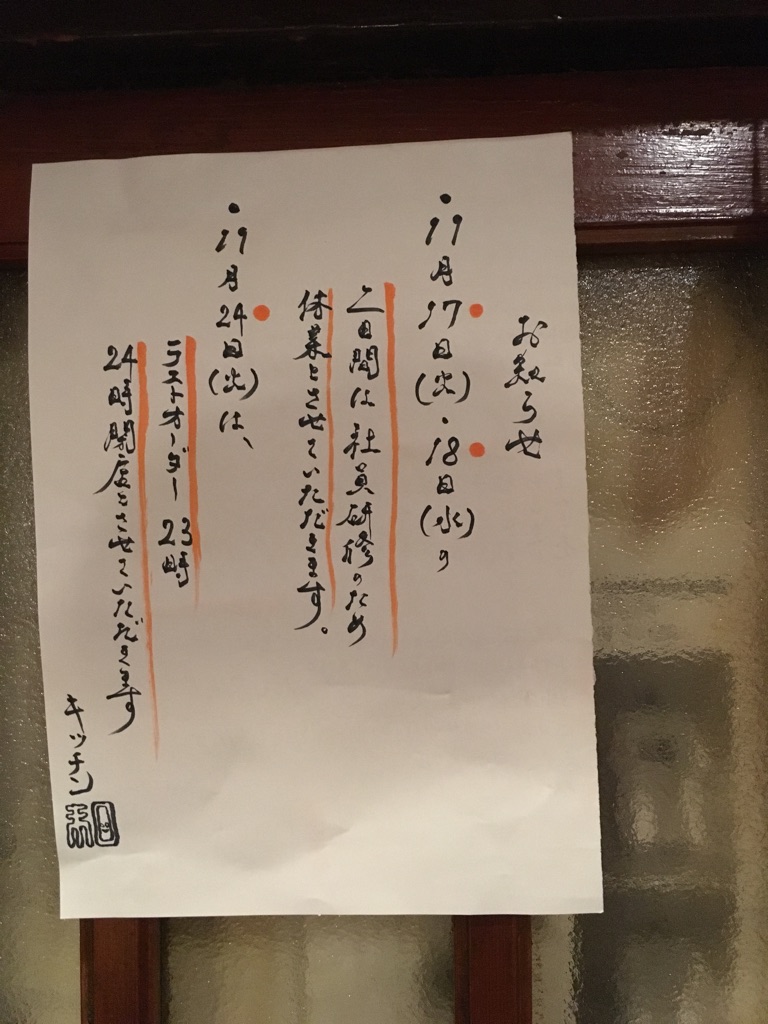 お知らせ
・19月17日(火)・18日(水)の
二日間は社員研修のため
休業とさせていただきます。
・19月24日(火)は、
ラストオーダー 23時
24時閉店とさせていただきます
キッチン